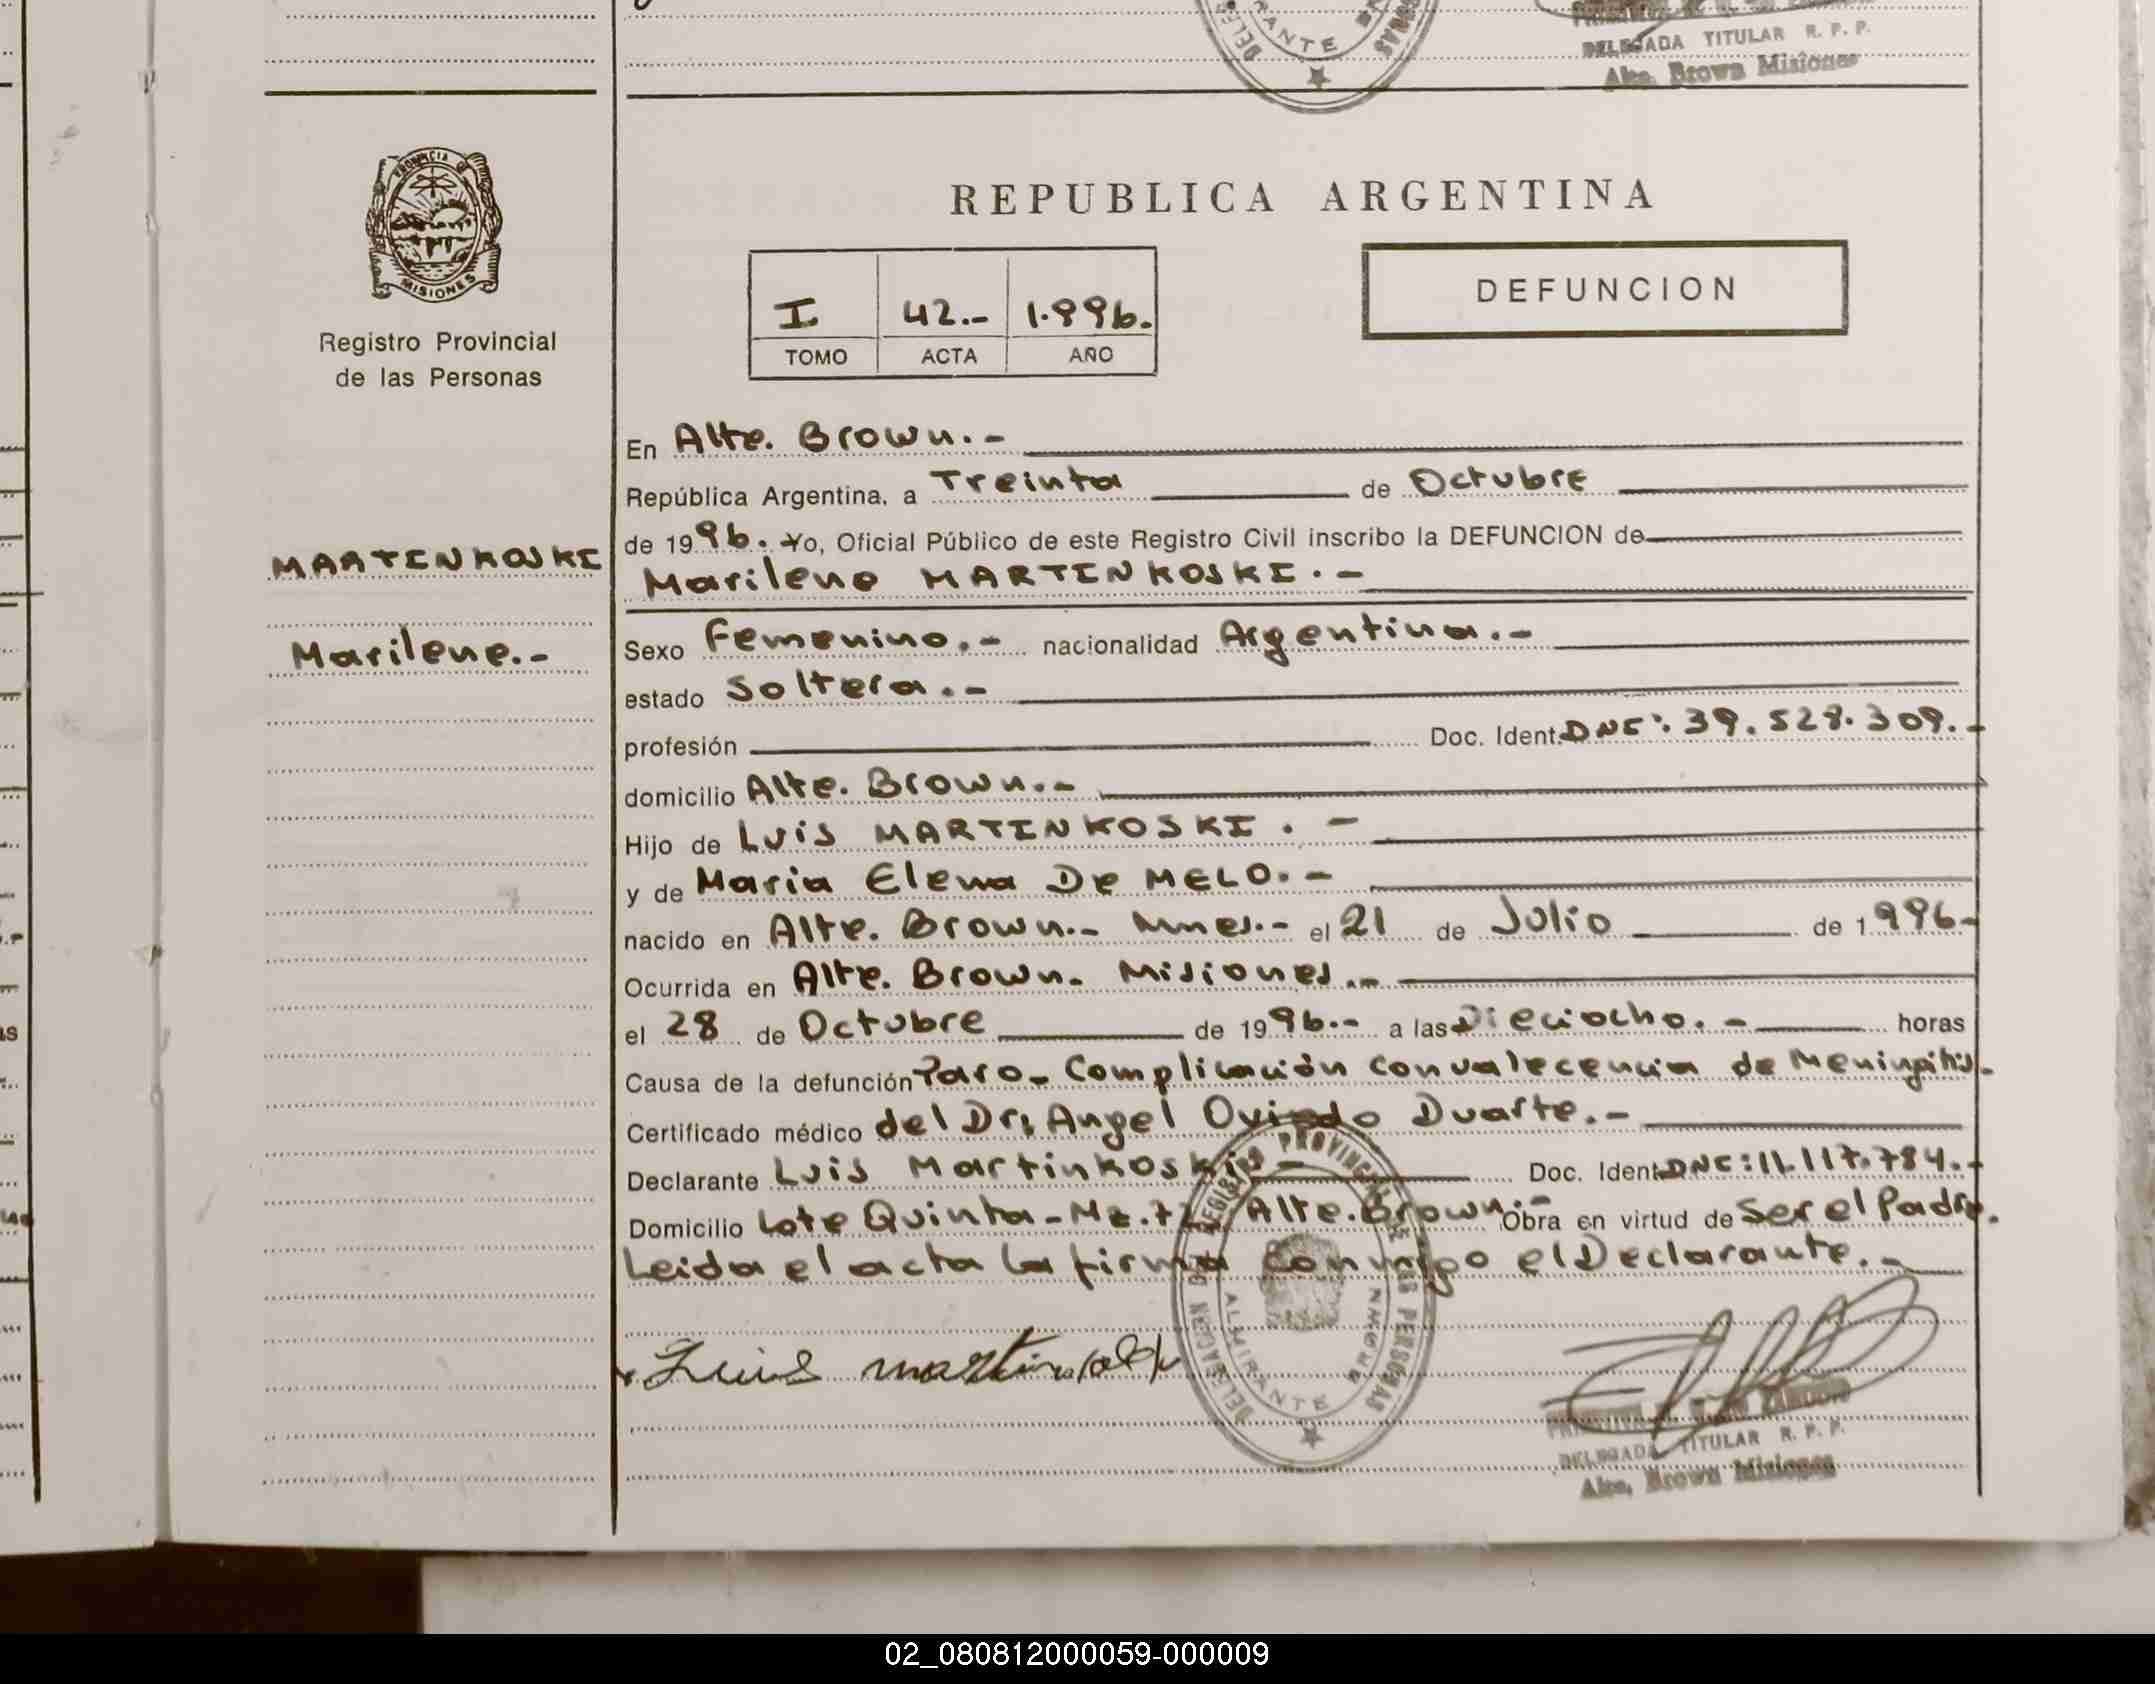 ANTE
DELEGADA TITULAR R. P. P.
Alte. Brown Misiones
PROVINCIA DE
MISIONES
Registro Provincial
de las Personas
REPUBLICA ARGENTINA
I 42.- 1.996.
TOMO ACTA AÑO
DEFUNCION
MARTINKOSKI
Marilene.-
En Alte. Brown.-
República Argentina, a Treinta de Octubre
de 1996. Yo, Oficial Público de este Registro Civil inscribo la DEFUNCION de
Marilene MARTINKOSKI.-
Sexo Femenino.- nacionalidad Argentina.-
estado Soltera.-
profesión Doc. Ident. DNI: 39.528.309.-
domicilio Alte. Brown.-
Hijo de Luis MARTINKOSKI.-
y de Maria Elena De MELO.-
nacido en Alte. Brown.- Mnes.- el 21 de Julio de 1996-
Ocurrida en Alte. Brown. Misiones.-
el 28 de Octubre de 1996.- a las Dieciocho.- horas
Causa de la defunción Paro- Complicación Convalecencia de Meningitis.
Certificado médico del Dr: Angel Oviedo Duarte.-
Declarante Luis Martinkoski.- Doc. Ident. DNI: 11.117.784.-
Domicilio Lote Quinta-Mz. Alte. Brown.- Obra en virtud de Ser el Padre.
Leida el acta la firma Conmigo el Declarante.-
Luis
DELEGACION DE REGISTRO PROVINCIAL DE LAS PERSONAS
ALMIRANTE BROWN
DELEGADA TITULAR R. P. P.
Alte. Brown Misiones
02_080812000059-000009